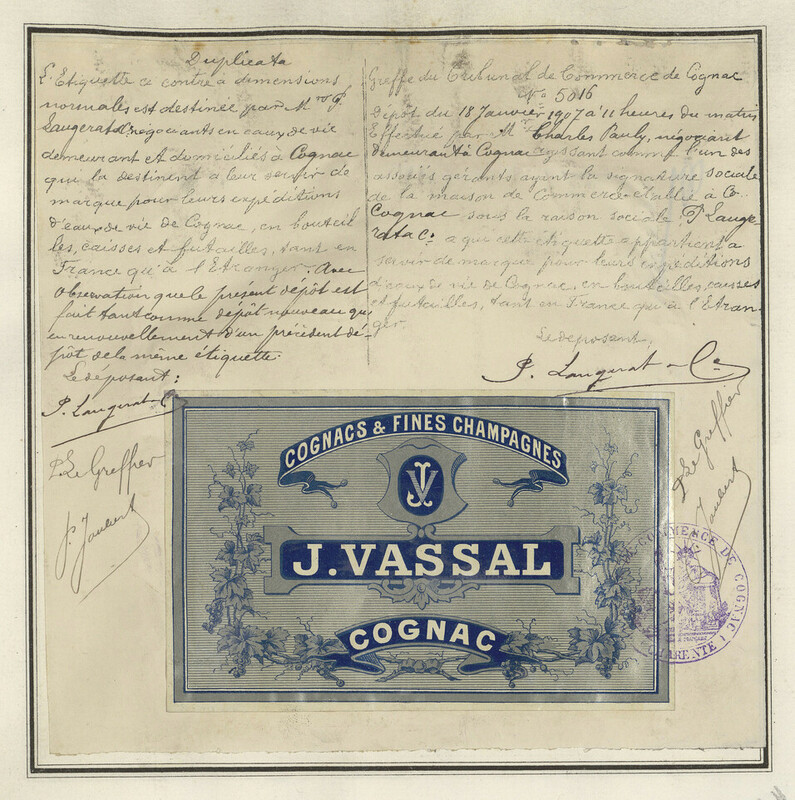 Duplicata
L'Etiquette ci contre à dimensions
normales est destinée par MM P.
Laugerat & Cie négociants en eaux de vie
demeurant et domiciliés à Cognac
qui la destinent à leur servir de
marque pour leurs expéditions
d'eaux de vie de Cognac, en bouteil
les, caisses et futailles, tant en
France qu'à l'Etranger. Avec
observation que le présent dépôt est
fait tant comme dépôt nouveau qu'
en renouvellement d'un précédent dé-
pôt de la même étiquette.
Le déposant:
P. Laugerat & Cie
P. Le Greffier
P. Joubert
Greffe du Tribunal de Commerce de Cognac
No 5016
Dépôt du 18 Janvier 1907 à 11 heures du matin
Effectué par Mr Charles Pauly, négociant
demeurant à Cognac agissant comme l'un des
associés gérants ayant la signature sociale
de la maison de Commerce établie à Co
Cognac sous la raison sociale P. Lauge-
rat & Co à qui cette étiquette appartient à
servir de marque pour leurs expéditions
d'eaux de vie de Cognac, en bouteilles, caisses
et futailles, tant en France qu'à l'Etran-
ger.
Le déposant,
P. Laugerat & Cie
P. Le Greffier
Joubert
COGNACS & FINES CHAMPAGNES
JV
J. VASSAL
COGNAC
COMMERCE DE COGNAC
(CHARENTE)